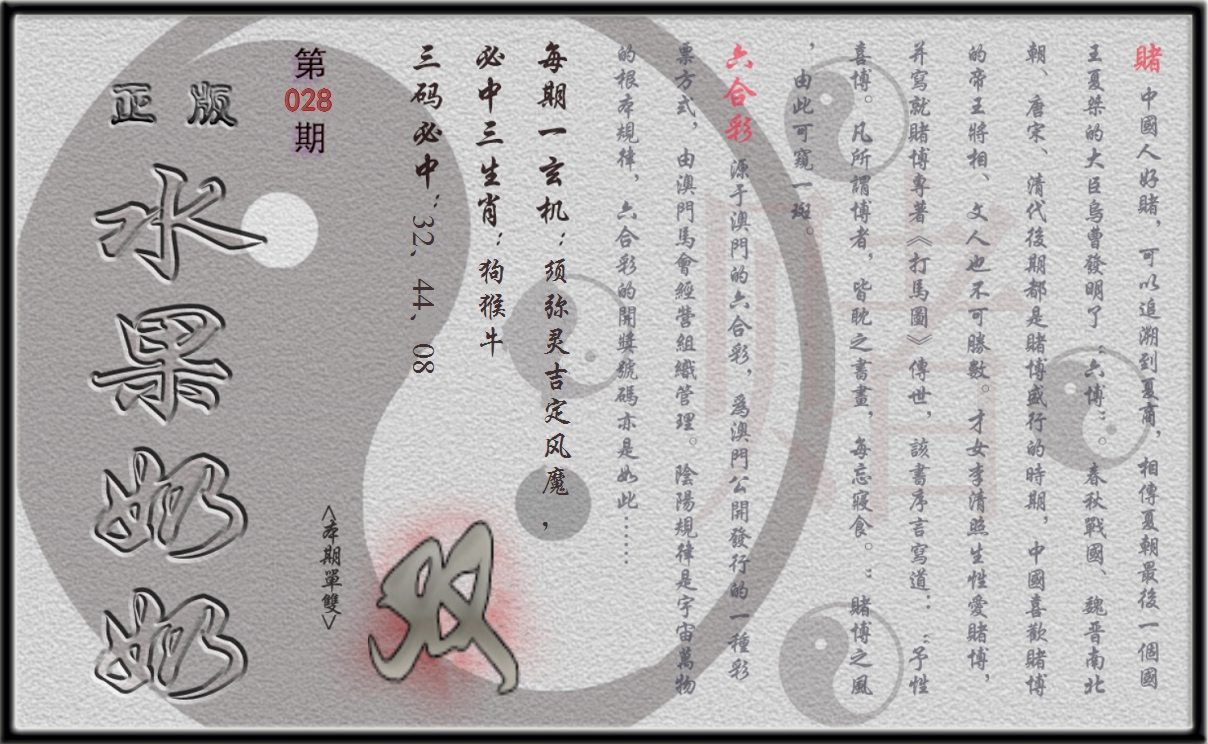 賭 中國人好賭，可以追溯到夏商，相傳夏朝最後一個國
王夏桀的大臣烏曹發明了“六博”。春秋戰國、魏晋南北
朝、唐宋、清代後期都是賭博盛行的時期，中國喜歡賭博
的帝王將相、文人也不可勝數。才女李清照生性愛賭博，
并寫就賭博專著《打馬圖》傳世，該書序言寫道：“予性
喜博。凡所謂博者，皆耽之書畫，每忘寢食。：賭博之風
，由此可窺一斑。
六合彩 源于澳門的六合彩，爲澳門公開發行的一種彩
票方式，由澳門馬會經營組織管理。陰陽規律是宇宙萬物
的根本規律，六合彩的開獎號碼亦是如此……
每期一玄机：须弥灵吉定风魔，
必中三生肖：狗猴牛
三码必中：32，44，08
双
<本期單雙>
第
028
期
正版
水果奶奶
賭